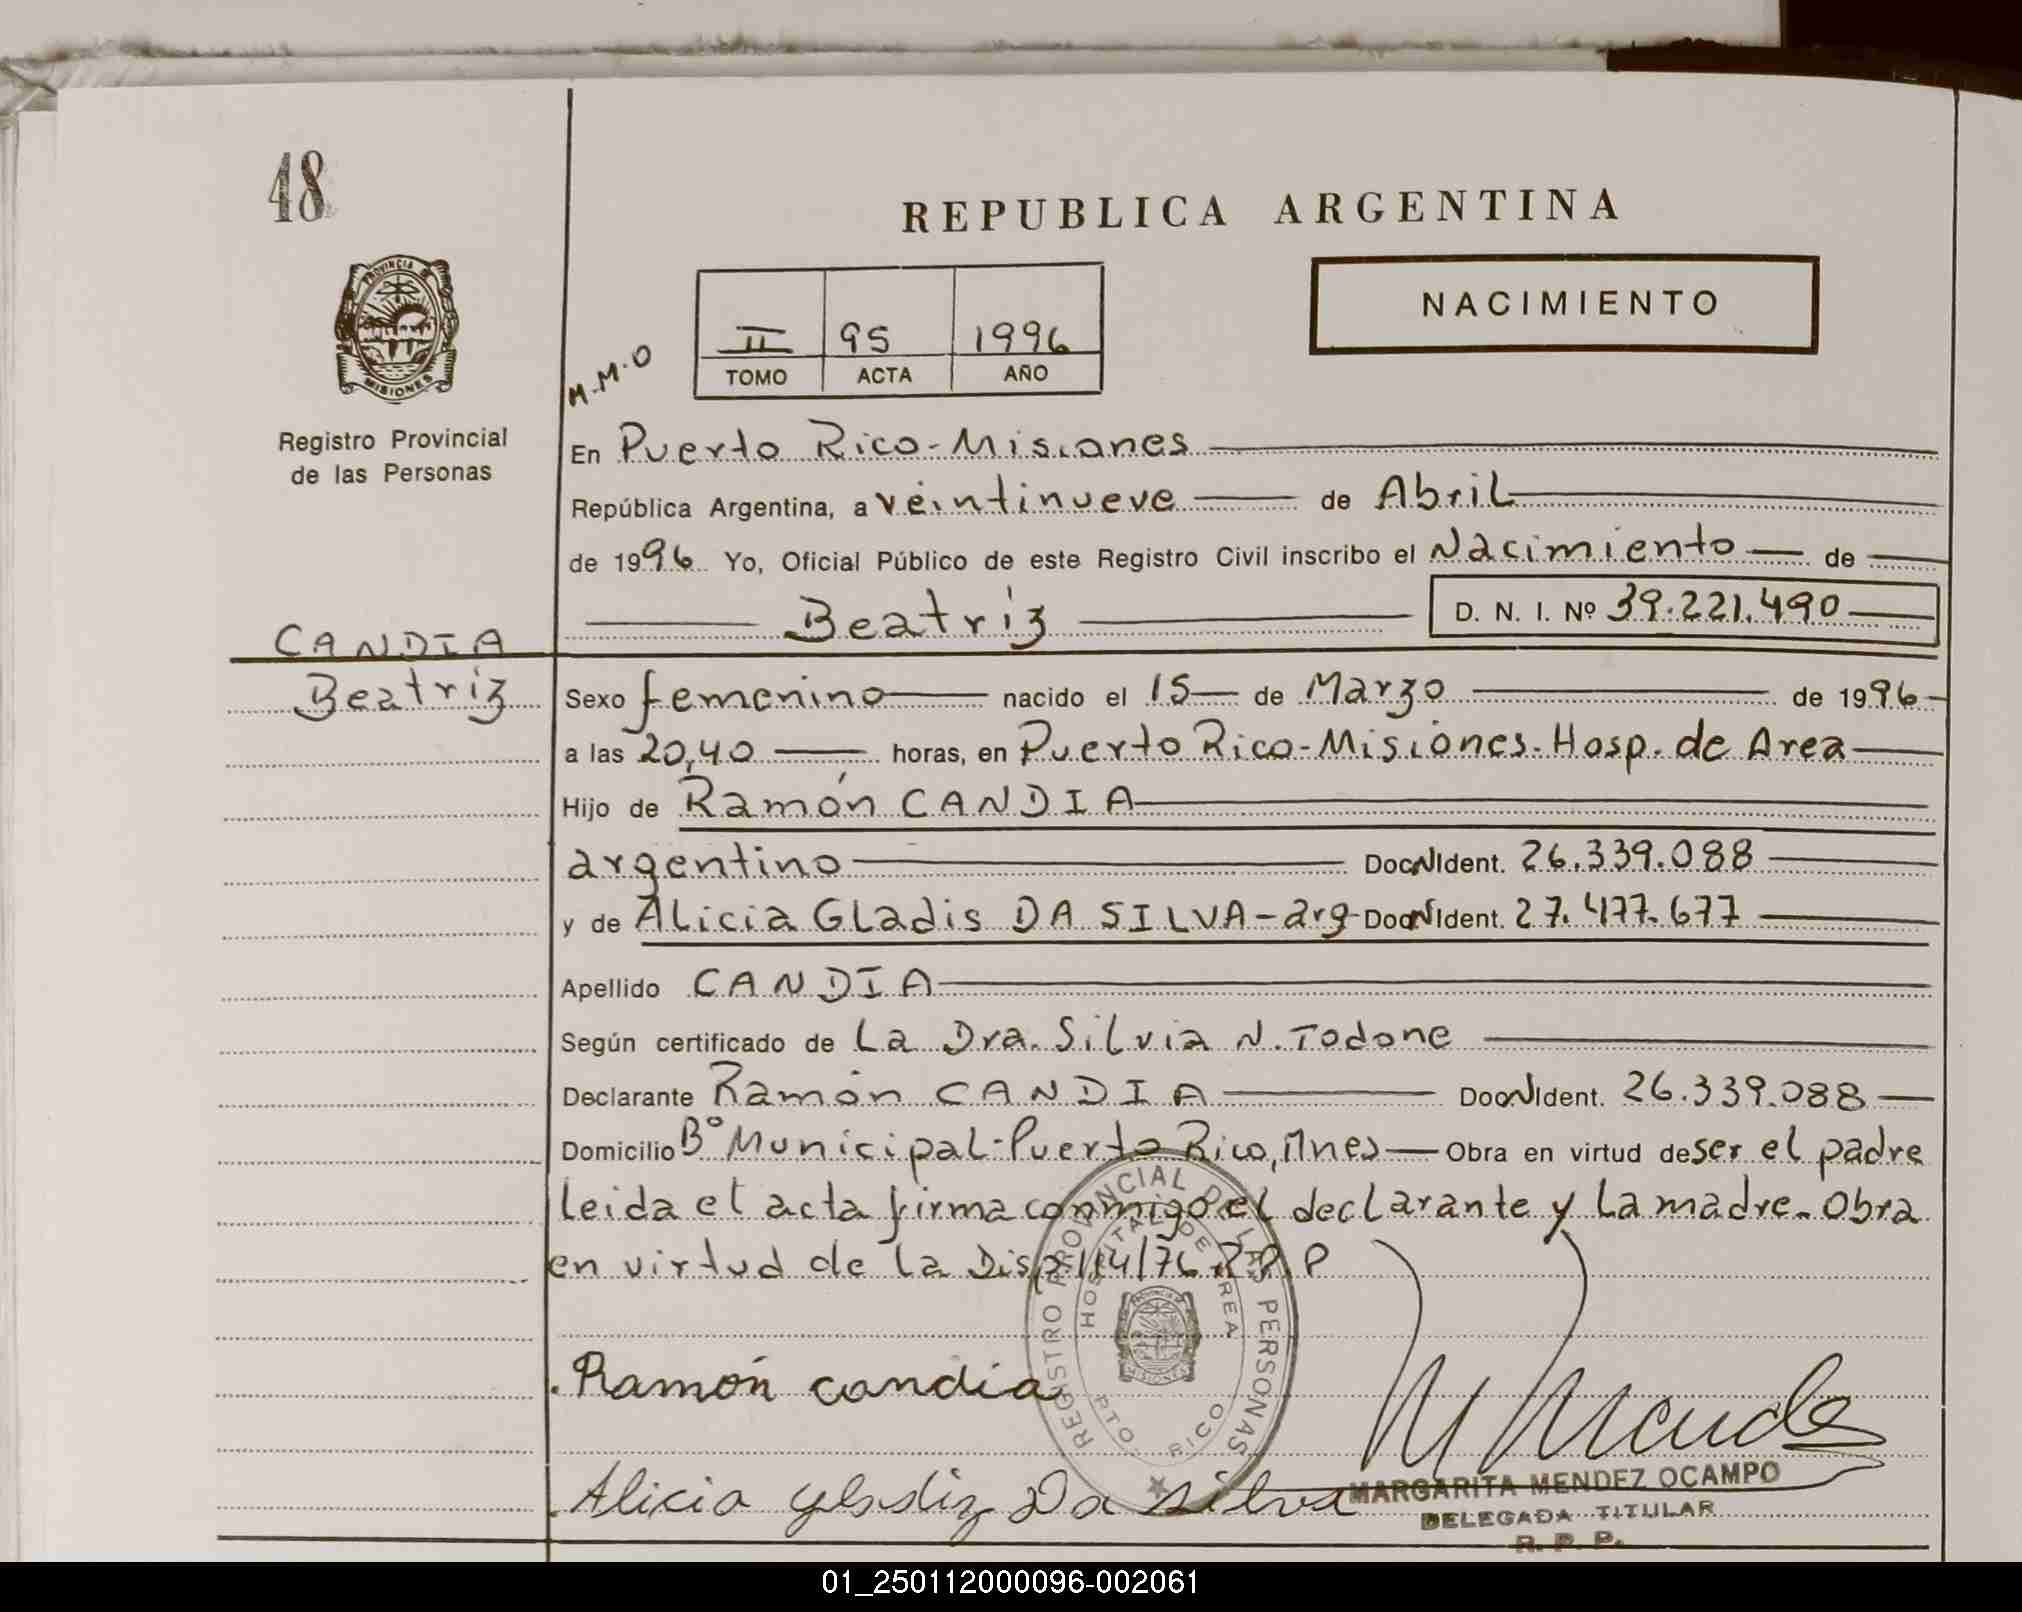 48
REPUBLICA ARGENTINA
PROVINCIA DE
MISIONES
NACIMIENTO
II 95 1996
TOMO ACTA AÑO
M.M.O
Registro Provincial
de las Personas
En Puerto Rico-Misiones
República Argentina, a veintinueve de Abril
de 1996 Yo, Oficial Público de este Registro Civil inscribo el Nacimiento de
Beatriz D. N. I. Nº 39.221.490
CANDIA
Beatriz
Sexo femenino nacido el 15 de Marzo de 1996
a las 20,40 horas, en Puerto Rico-Misiones-Hosp. de Area
Hijo de Ramón CANDIA
argentino Doc. Ident. 26.339.088
y de Alicia Gladis DA SILVA-arg- Doc. Ident. 27.477.677
Apellido CANDIA
Según certificado de La Dra. Silvia N. Todone
Declarante Ramón CANDIA Doc. Ident. 26.339.088
Domicilio Bº Municipal-Puerto Rico, Mnes Obra en virtud de ser el padre
leida el acta firma conmigo el declarante y la madre. Obra
en virtud de la Disp. 114/76 R.P.P
REGISTRO PROVINCIAL DE LAS PERSONAS
HOSPITAL DE AREA
PTO. RICO
MISIONES
Ramón candia
M Mendez
Alicia Gladiz Da Silva
MARGARITA MENDEZ OCAMPO
DELEGADA TITULAR
R. P. P.
01_250112000096-002061